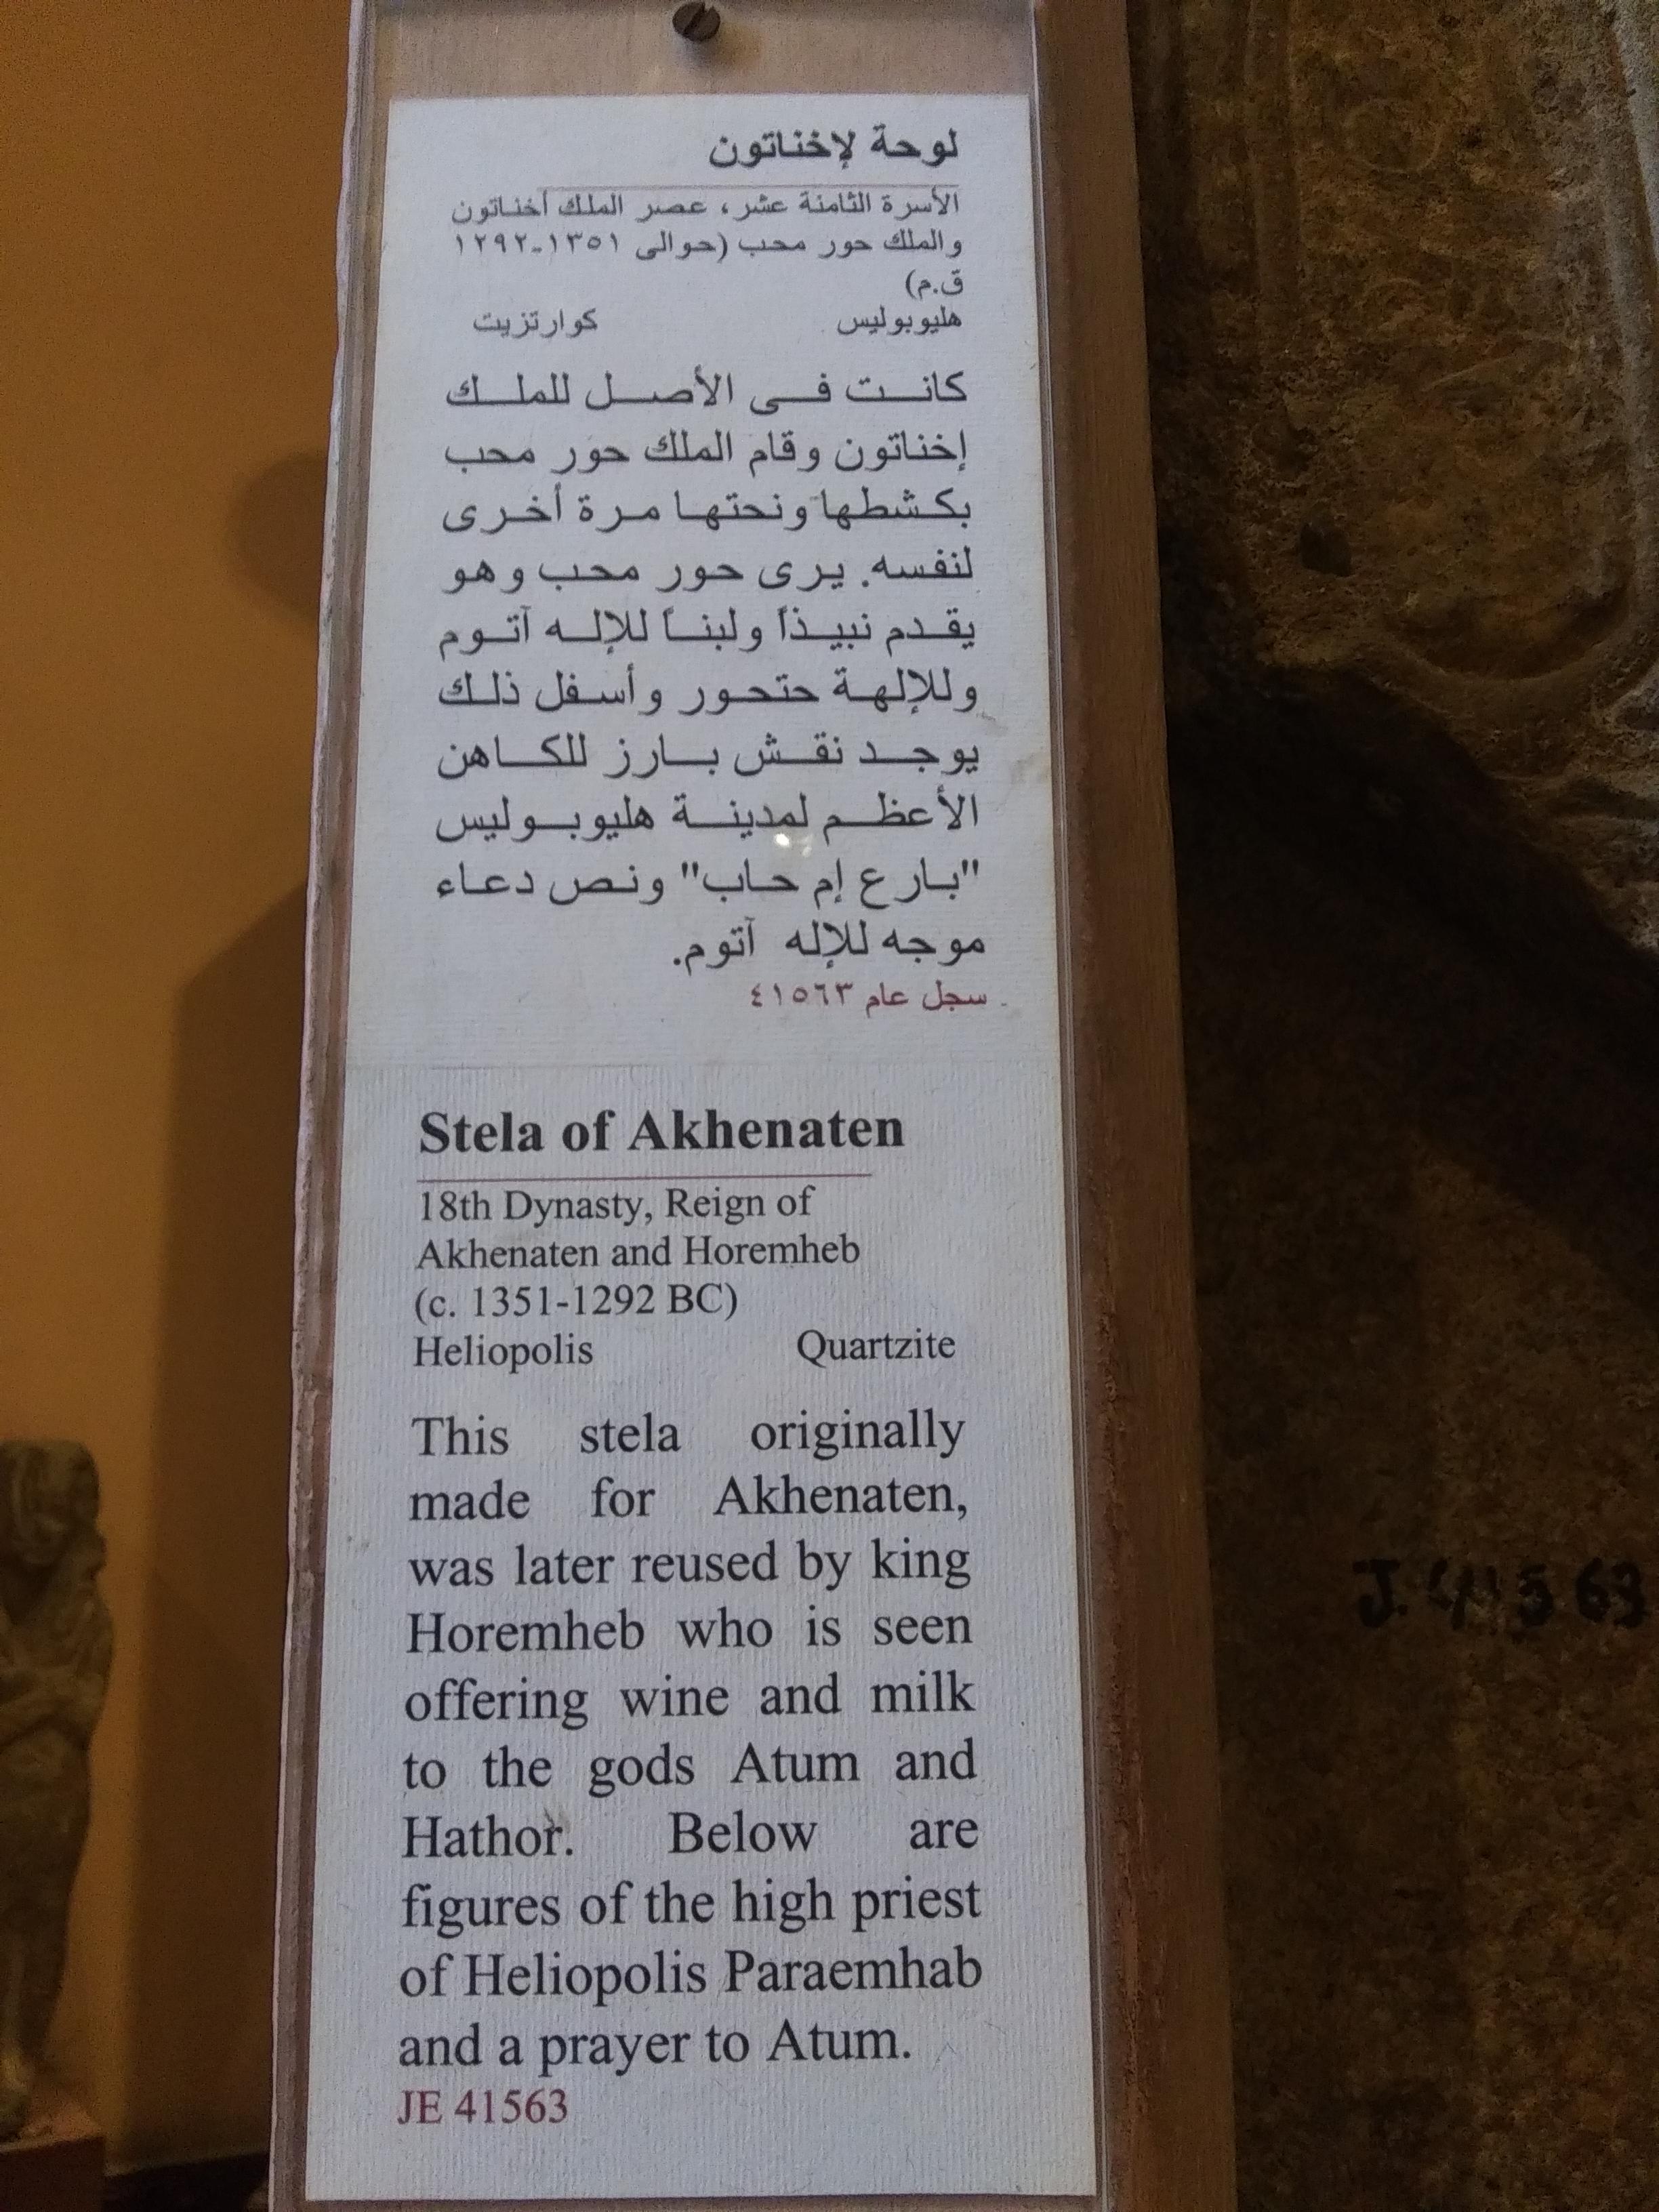 لوحة لإخناتون
الأسرة الثامنة عشر، عصر الملك أخناتون
والملك حور محب (حوالى ١٣٥١-١٢٩٢
ق.م)
هليوبوليس كوارتزيت
كانت فى الأصل للملك
إخناتون وقام الملك حور محب
بكشطها ونحتها مرة أخرى
لنفسه. يرى حور محب وهو
يقدم نبيذاً ولبناً للإله آتوم
وللإلهة حتحور وأسفل ذلك
يوجد نقش بارز للكاهن
الأعظم لمدينة هليوبوليس
"بارع إم حاب" ونص دعاء
موجه للإله آتوم.
سجل عام ٤١٥٦٣
Stela of Akhenaten
18th Dynasty, Reign of
Akhenaten and Horemheb
(c. 1351-1292 BC)
Heliopolis Quartzite
This stela originally
made for Akhenaten,
was later reused by king
Horemheb who is seen
offering wine and milk
to the gods Atum and
Hathor. Below are
figures of the high priest
of Heliopolis Paraemhab
and a prayer to Atum.
JE 41563
J. 41563